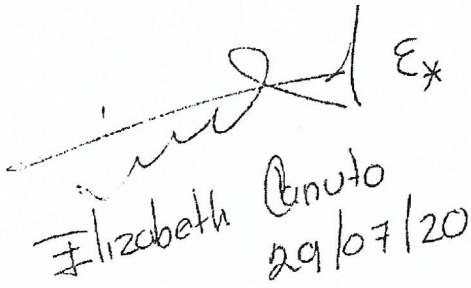 ε*
Elizabeth Canuto
29/07/20